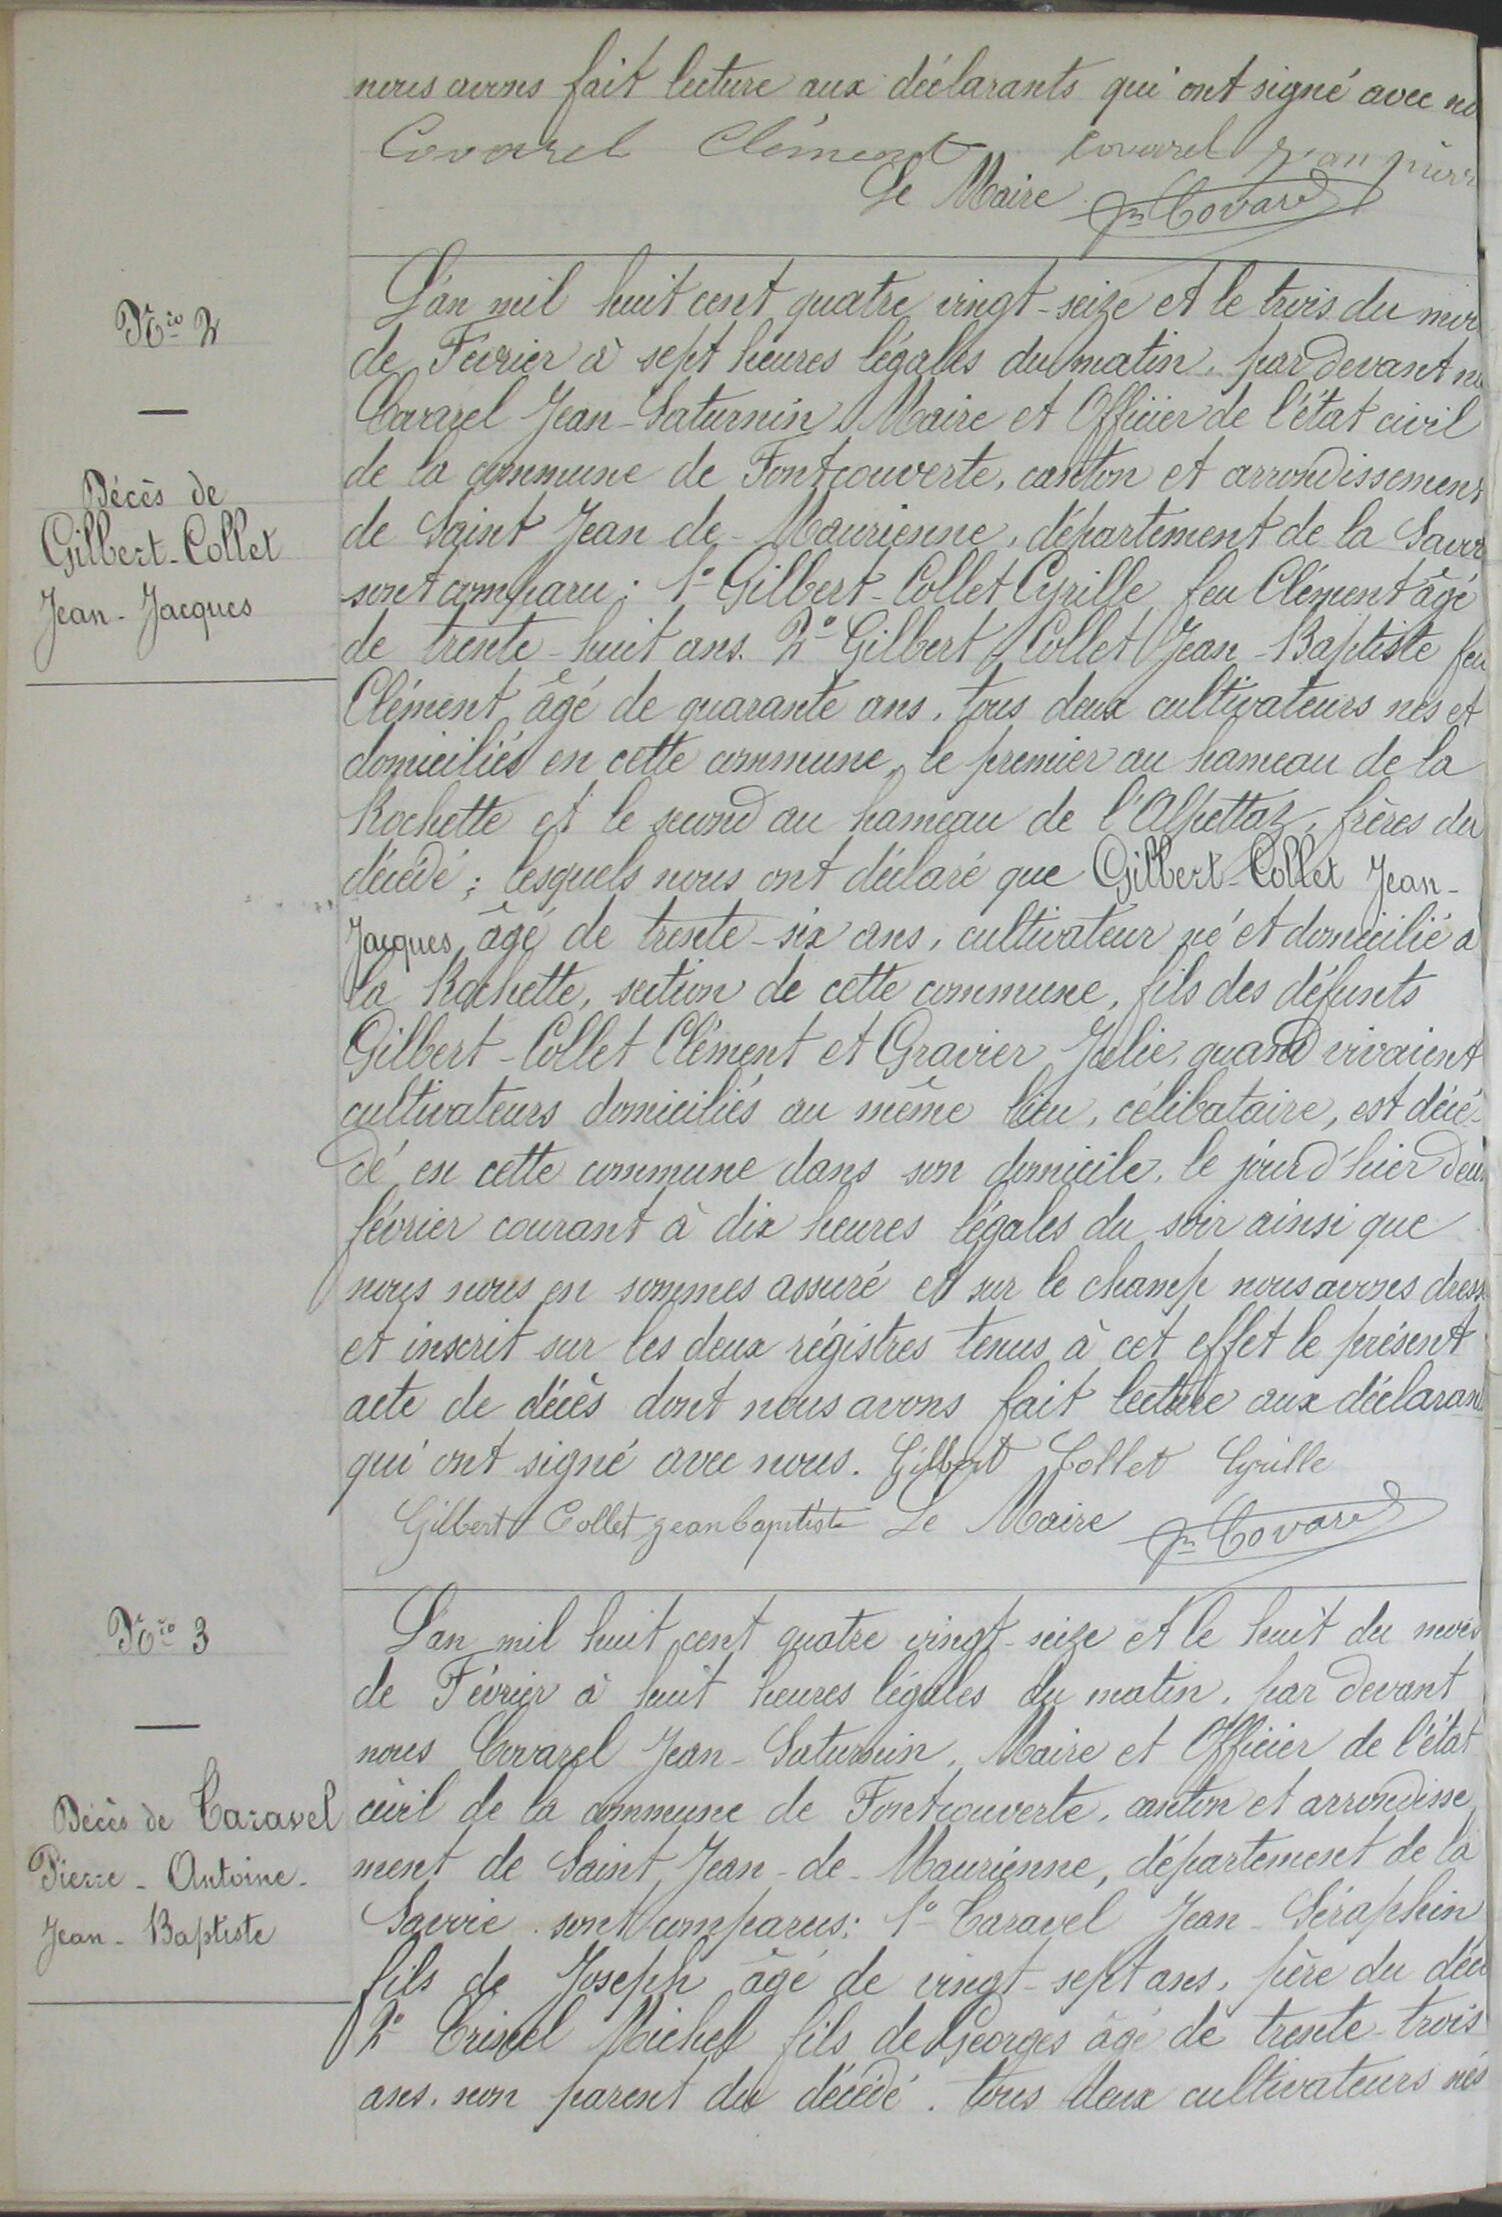 nous avons fait lecture aux déclarants qui ont signé avec no
Covarel Clément Covarel jean pierr
Le Maire Jn Covarel
Nro 2
Décès de
Gilbert-Collet
Jean-Jacques
L'an mil huit cent quatre vingt-seize et le trois du moi
de Février à sept heures légales du matin, par devant no
Covarel Jean-Saturnin Maire et Officier de l'état civil
de la commune de Fontcouverte, canton et arrondissement
de Saint Jean de-Maurienne, département de la Savoi
sont comparu: 1° Gilbert-Collet Cyrille feu Clément âgé
de trente-huit ans. 2° Gilbert Collet Jean-Baptiste feu
Clément âgé de quarante ans, tous deux cultivateurs nés et
domiciliés en cette commune, le premier au hameau de la
Rochette et le second au hameau de l'Alpettaz, frères du
décédé; lesquels nous ont déclaré que Gilbert-Collet Jean-
Jacques, âgé de trente-six ans, cultivateur né et domicilié à
la Rochette, section de cette commune, fils des défunts
Gilbert-Collet Clément et Gravier Julie, quand vivaient
cultivateurs domiciliés au même lieu, célibataire, est décé-
dé en cette commune dans son domicile, le jourd'hier deux
février courant à dix heures légales du soir ainsi que
nous nous en sommes assuré et sur le champ nous avons dress
et inscrit sur les deux régistres tenus à cet effet le présent
acte de décès dont nous avons fait lecture aux déclarant
qui ont signé avec nous. Gilbert Collet Cyrille
Gilbert Collet jean baptiste Le Maire Jn Covarel
Nro 3
Décès de Caravel
Pierre-Antoine-
Jean-Baptiste
L'an mil huit cent quatre vingt-seize et le huit du mois
de Février à huit heures légales du matin, par devant
nous Covarel Jean-Saturnin, Maire et Officier de l'état
civil de la commune de Fontcouverte, canton et arrondisse
ment de Saint Jean-de-Maurienne, département de la
Savoie sont comparus: 1° Caravel Jean-Séraphin
fils de Joseph âgé de vingt-sept ans, père du décé
2° Michel fils de Georges âgé de trente-trois
ans, non parent du décédé. tous deux cultivateurs nés